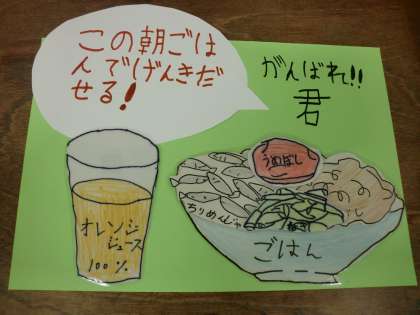 この朝ごは
んでげんきだ
せる!
がんばれ!!
君
オレンジ
ジュース
100%
うめぼし
ちりめんじゃ
ねぎ
ごはん